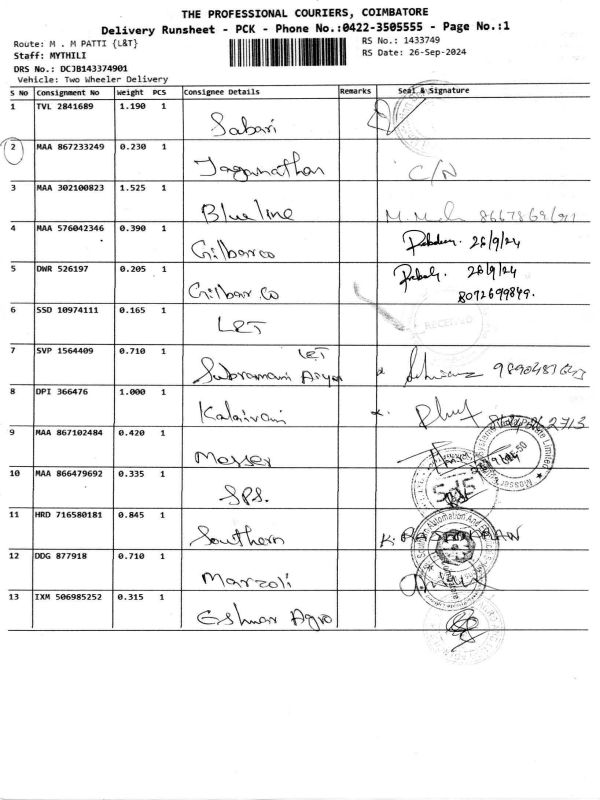 THE PROFESSIONAL COURIERS, COIMBATORE
Delivery Runsheet - PCK - Phone No.:0422-3505555 - Page No.:1
Route: M . M PATTI {L&T}
RS No.: 1433749
Staff: MYTHILI
RS Date: 26-Sep-2024
DRS No.: DCJB143374901
Vehicle: Two Wheeler Delivery
S No Consignment No Weight PCS Consignee Details Remarks Seal & Signature
1 TVL 2841689 1.190 1 Sabari
2 MAA 867233249 0.230 1 Jaganathan C/N
3 MAA 302100823 1.525 1 Blueline
4 MAA 576042346 0.390 1 Gilbarco 26/9/24
5 DWR 526197 0.205 1 Gilbar.co 26/9/24
8072699849.
6 SSD 10974111 0.165 1 L&T RECEIVED
7 SVP 1564409 0.710 1 L&T
Subramani
8 DPI 366476 1.000 1 Kalaivani
9 MAA 867102484 0.420 1 Mosser
10 MAA 866479692 0.335 1 SPS. SPS
11 HRD 716580181 0.845 1 Southern
12 DDG 877918 0.710 1 Marzoli
13 IXM 506985252 0.315 1 Eshwar Agro